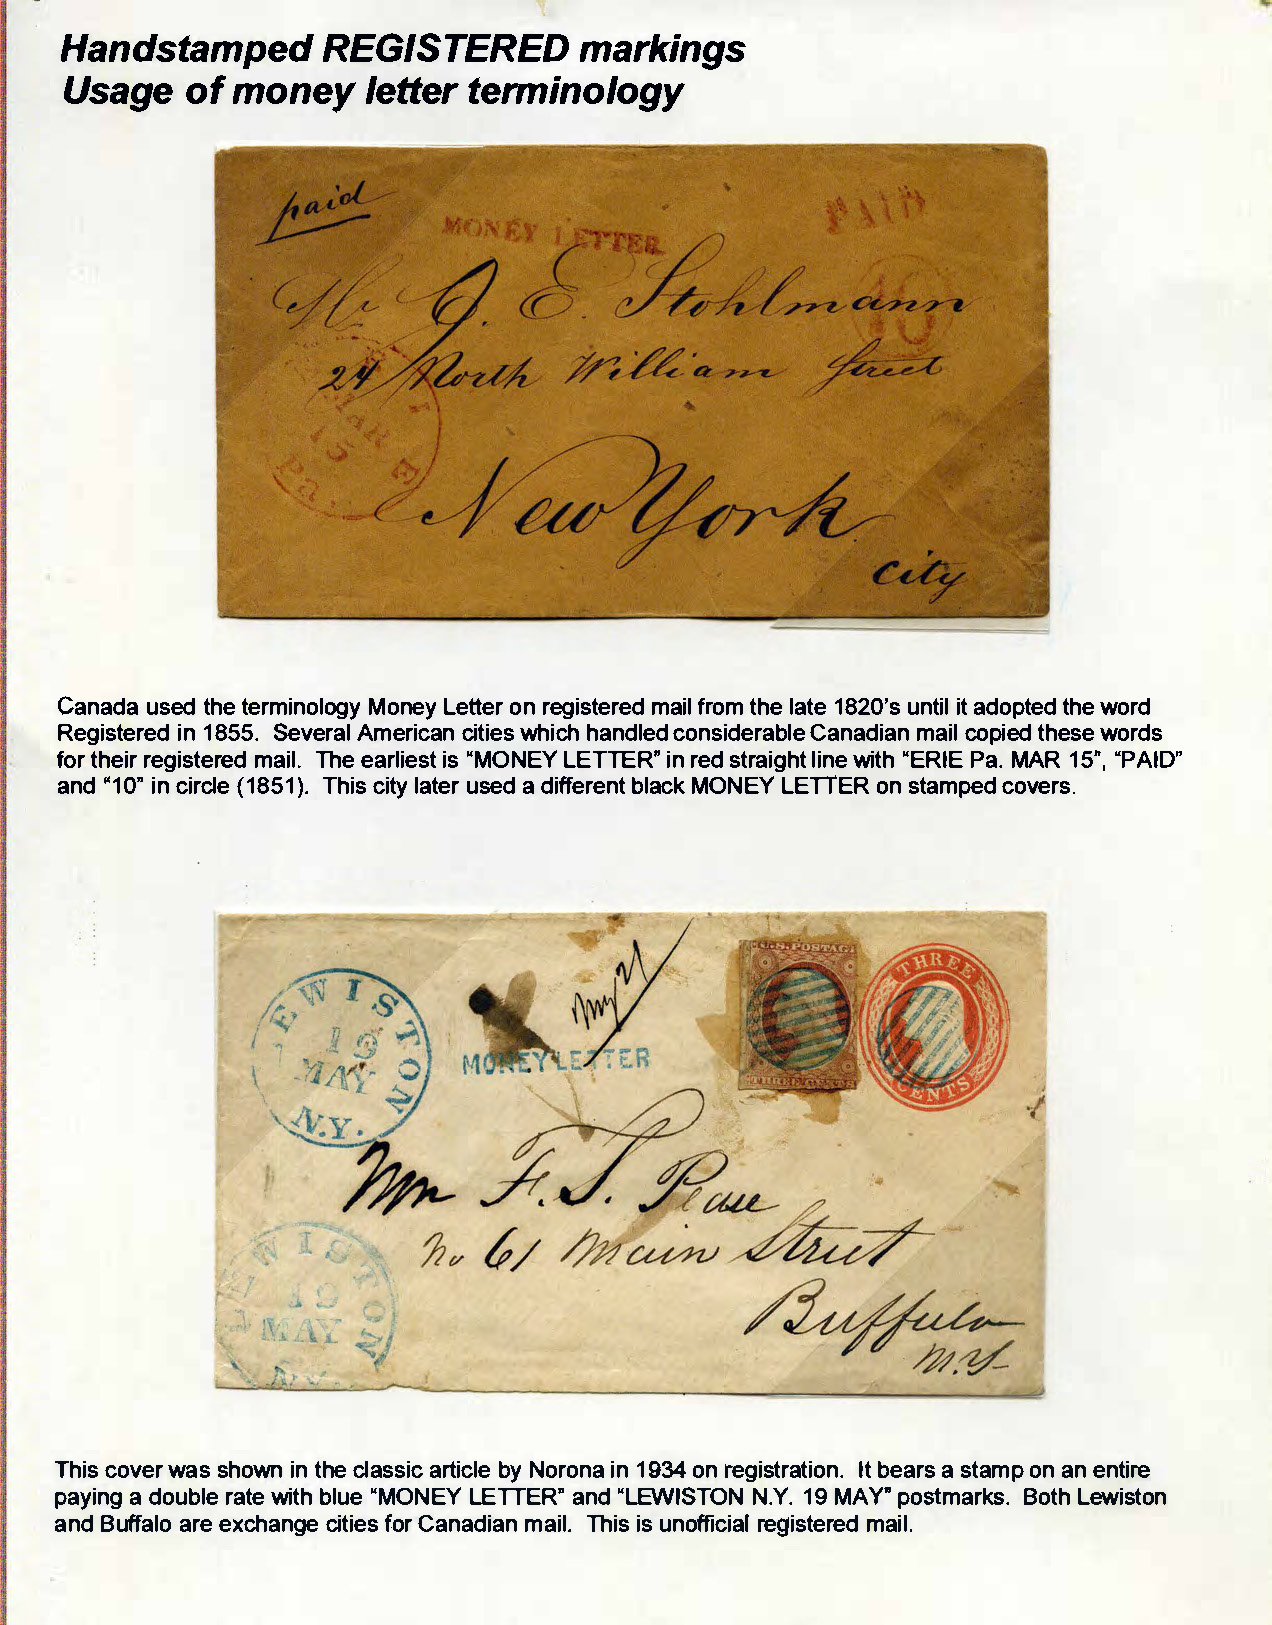 Handstamped REGISTERED markings
Usage of money letter terminology
paid
MONEY LETTER
PAID
10
Mr J. E. Stohlmann
24 North William Street
ERIE
MAR
15
Pa.
New York
city
Canada used the terminology Money Letter on registered mail from the late 1820's until it adopted the word
Registered in 1855. Several American cities which handled considerable Canadian mail copied these words
for their registered mail. The earliest is "MONEY LETTER" in red straight line with "ERIE Pa. MAR 15", "PAID"
and "10" in circle (1851). This city later used a different black MONEY LETTER on stamped covers.
LEWISTON
19
MAY
N.Y.
MONEY LETTER
May 21
U.S. POSTAGE
THREE CENTS
THREE
CENTS
F. S. Pease
No 61 Main Street
Buffalo
N.Y.
LEWISTON
19
MAY
N.Y.
This cover was shown in the classic article by Norona in 1934 on registration. It bears a stamp on an entire
paying a double rate with blue "MONEY LETTER" and "LEWISTON N.Y. 19 MAY" postmarks. Both Lewiston
and Buffalo are exchange cities for Canadian mail. This is unofficial registered mail.